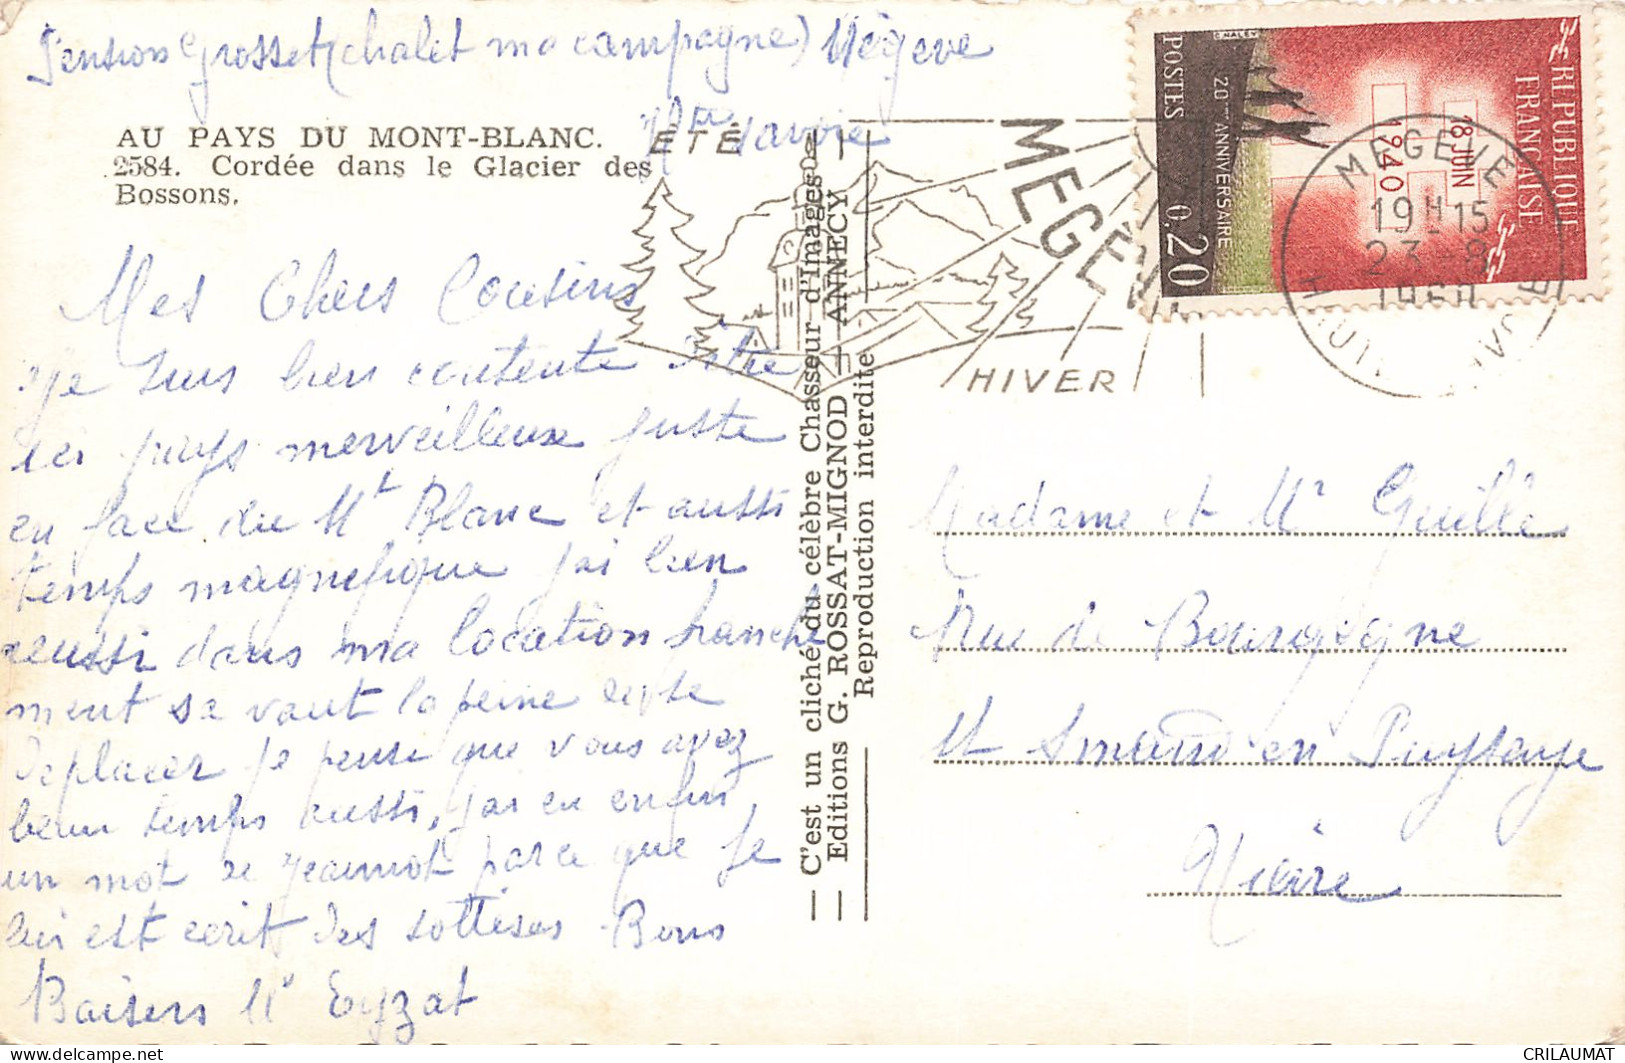 Pension Grosset (chalet ma campagne) Mégève
Hte Savoie
AU PAYS DU MONT-BLANC.
2584. Cordée dans le Glacier des
Bossons.
Mes Chers Cousins
Je suis bien contente d'être
ici pays merveilleux juste
en face du Mt Blanc et aussi
temps magnefique j'ai bien
reussi dans ma location franche
ment sa vaut la peine de se
deplacer je pense que vous avez
beau temps aussi, j'ai eu enfin
un mot de Jeannot parce que je
lui est ecrit des sottises Bons
Baisers Mr Eyzat
C'est un cliché du célèbre Chasseur d'Images
Editions G. ROSSAT-MIGNOD — ANNECY —
Reproduction interdite
ÉTÉ
MEGÈVE
HIVER
REPUBLIQUE
FRANÇAISE
18 JUIN
1940
20me ANNIVERSAIRE
POSTES
0,20
MEGEVE
19H15
23-8
1960
Madame et Mr Guillé
Rue de Bourgogne
St Amand en Puysaye
Nièvre
delcampe.net
CRILAUMAT